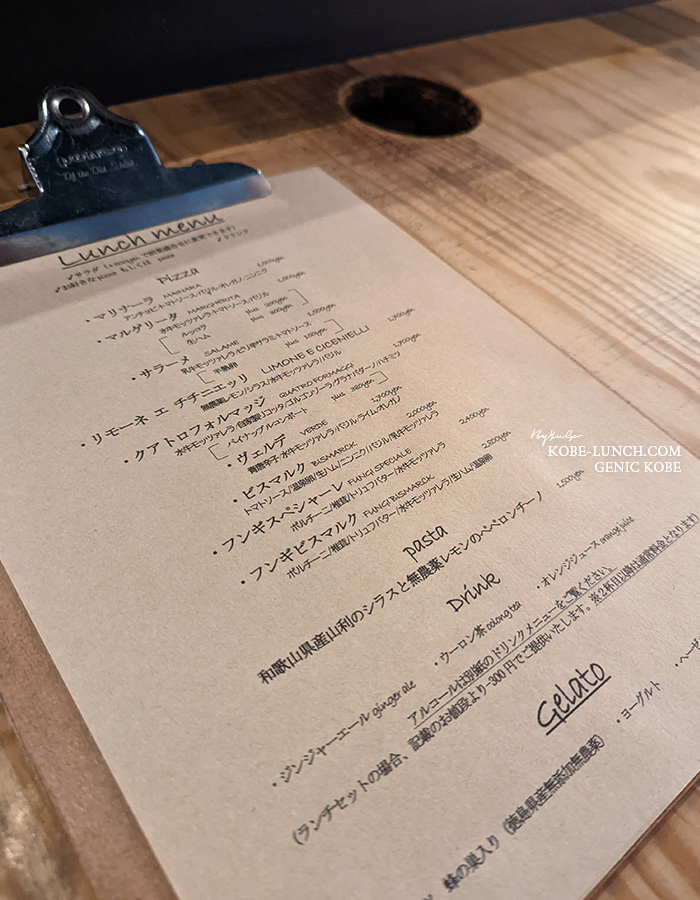 Of the Old School
Lunch menu
✓サラダ
✓ドリンク
✓お好きなpizza もしくは pasta
Pizza
・マリナーラ MAINARA 1,000yen
アンチョビ/トマトソース/バジル/オレガノ/ニンニク
・マルゲリータ MARGHERITA 1,000yen
水牛モッツァレラ/トマトソース/バジル
ルッコラ plus 200yen
生ハム plus 500yen
・サラーメ SALAME 1,500yen
乳牛モッツァレラ/ピリ辛サラミ/トマトソース
半熟卵 plus 100yen
・リモーネ エ チチニエッリ LIMONE E CICENIELLI 1,700yen
無農薬レモン/シラス/水牛モッツァレラ/バジル
・クアトロフォルマッジ QUATRO FORMAGGI 1,900yen
水牛モッツァレラ/自家製リコッタ/ゴルゴンゾーラ/グラナパダーノ/ハチミツ
パイナップルコンポート plus 350yen
・ヴェルデ VERDE 1,700yen
青唐辛子/水牛モッツァレラ/バジル/ライム/オレガノ
・ビスマルク BISMARCK 2,000yen
トマトソース/温泉卵/生ハム/ニンニク/バジル/乳牛モッツァレラ
・フンギスペシャーレ FUNGI SPECIALE 2,400yen
ポルチーニ/椎茸/トリュフバター/水牛モッツァレラ
・フンギビスマルク FUNGI BISMARCK 2,800yen
ポルチーニ/椎茸/トリュフバター/水牛モッツァレラ/生ハム/温泉卵
pasta
和歌山県産山利のシラスと無農薬レモンのペペロンチーノ 1,500yen
Drink
・ジンジャーエール ginger ale ・ウーロン茶 oolong tea ・オレンジジュース orange juice
アルコールは別紙のドリンクメニューをご覧ください。
(ランチセットの場合、記載のお値段より-300円でご提供いたします。※2杯目以降は通常料金となります)
Gelato
蜂の巣入り (徳島県産無添加無農薬) ・ヨーグルト ・ヘーゼ
KOBE-LUNCH.COM
GENIC KOBE